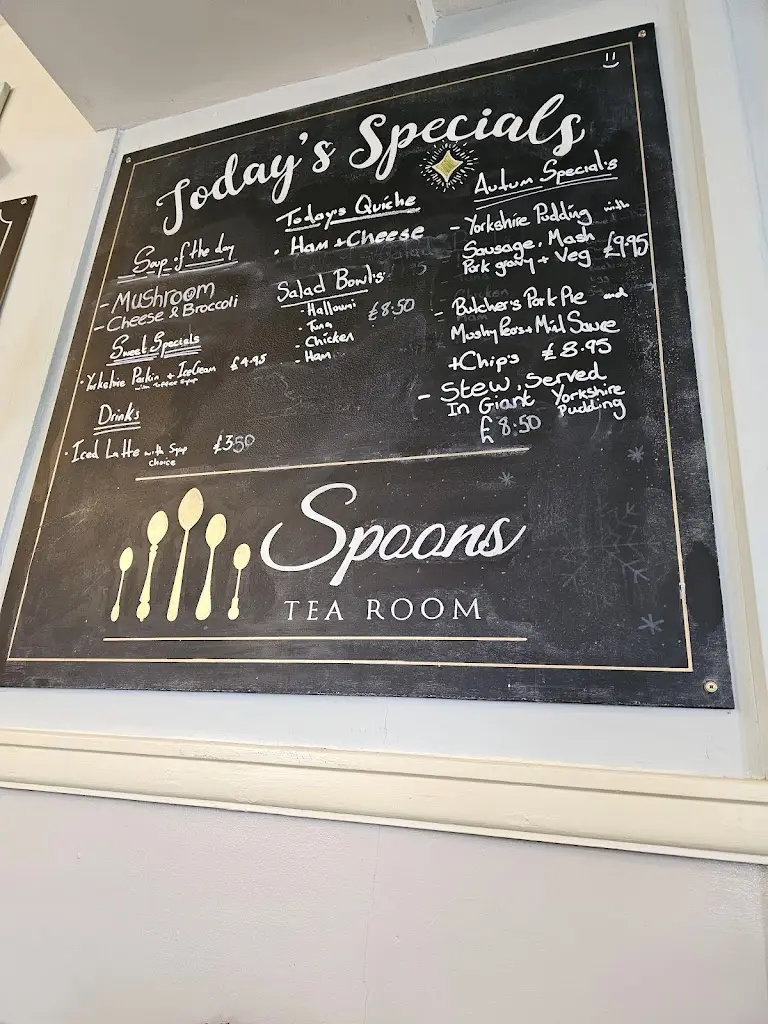 Today's Specials
Soup of the day
- Mushroom
- Cheese & Broccoli
Sweet Specials
• Yorkshire Parkin + Icecream £4.95
with Toffee Syrup
Drinks
• Iced Latte with Syrup £3.50
choice
Today's Quiche
• Ham + Cheese
Salad Bowl's
- Halloumi £8.50
- Tuna
- Chicken
- Ham
Autum Special's
- Yorkshire Pudding with
Sausage, Mash £9.95
Pork gravy + Veg
- Butcher's Pork Pie and
Mushy Peas + Mint Sauce
+ Chip's £8.95
- Stew, Served
In Giant Yorkshire
Pudding
£8.50
Spoons
TEA ROOM